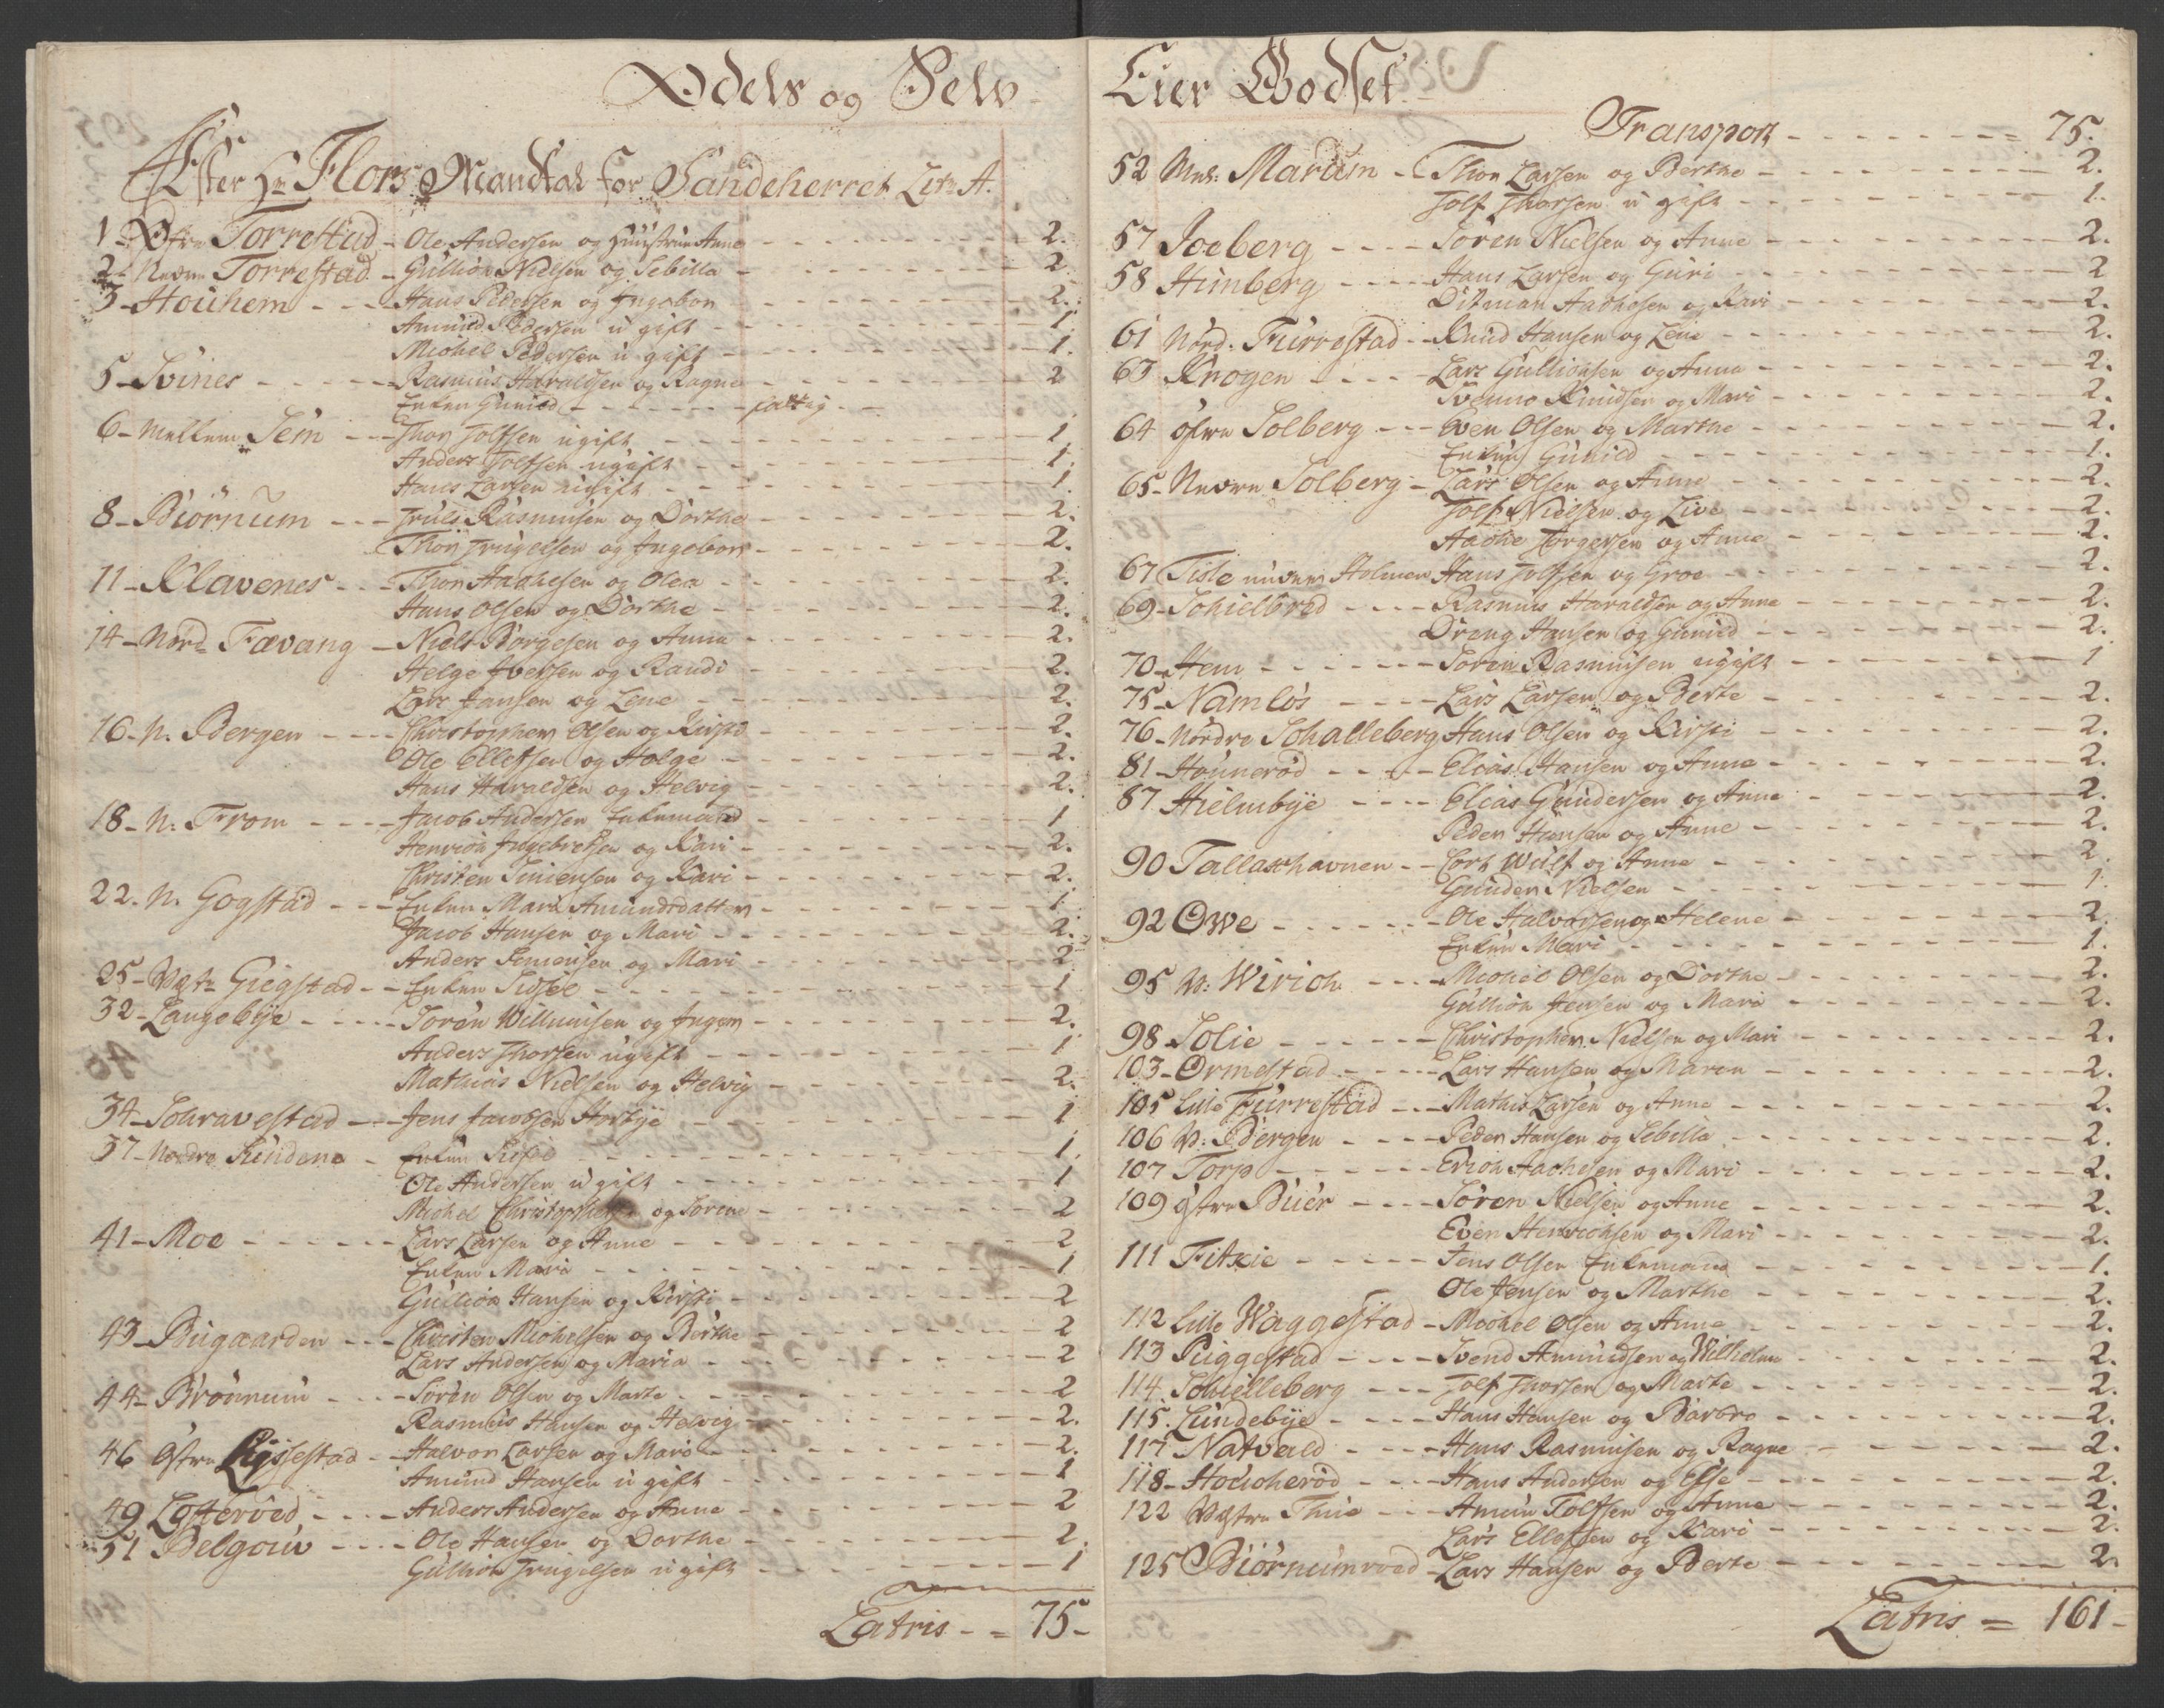 Odels og Selv
Efter Hr Flors Mandtal for Sandeherret Litr A.
1 - Øfre Torrestad - Ole Andersen og Huustrue Anne - 2.
2 - Nedre Torrestad - Gullich Nielsen og Sebilla - 2
3 - Houhem - Hans Pedersen og Ingebor - 2.
Amund Pedersen ugift - 1
Michel Pedersen ugift - 1.
5 - Svines - Rasmus Haraldsen og Ragne - 2
Enken Gunild - fattig
6 - Mellem Sem - Thor Jolfsen ugift - 1
Anders Jolfsen ugift - 1.
Hans Larsen ugift - 1
8 - Biørnum - Truls Rasmusen og Dorthe - 2.
Thor Trugelsen og Ingebor - 2.
11 - Klavenes - Thor Aachesen og Olea - 2.
Hans Olsen og Dorthe - 2.
14 - Nord Fævang - Niels Borgesen og Anne - 2.
Helge Iversen og Randi - 2.
Lars Hansen og Lene - 2.
16 - N. Bergen - Christopher Olsen og Kirsti - 2.
Ole Ellefsen og Helge - 2.
Hans Haraldsen og Helvig - 2.
18 - N. From - Jacob Andersen Enkemand - 1
Henrich Ingebretsen og Kari - 2.
Christen Simensen og Kari - 2.
22. N. Gogstad - Enken Mari Amundsdatter - 1
Jacob Hansen og Mari - 2.
Anders Simensen og Mari - 2
25 - Westr Giegstad - Enken Sidsel - 1
32 - Langebye - Soren Willumsen og Inger - 2.
Anders Thorsen ugift - 1
Mathias Nielsen og Helvig - 2.
34 - Schravestad - Jens Jacobsen Horbye - 1
37 - Nordre Kindene - Enken Sidsel - 1.
Ole Andersen ugift - 1
Michel Christophersen og Sorene - 2
41 - Moe - Lars Larsen og Anne - 2
Enken Mari - 1
Gullich Hansen og Kirsti - 2
43 - Bugaarden - Christen Michelsen og Berthe - 2
Lars Andersen og Maria - 2
44 - Brønnum - Søren Olsen og Marte - 2
Rasmus Hansen og Helvig - 2.
46 Østre Lyssestad - Halvor Larsen og Mari - 2.
Amund Hansen ugift - 1
49 Løfterød - Anders Andersen og Anne - 2
51 Belgouv - Ole Hansen og Dorthe - 2.
Gullich Trugelsen ugift - 1
Latris - 75 -
Eier Godset
Transport - 75.
52 Mel: Marum - Thor Larsen og Berthe - 2.
Jolf Thorsen ugift - 1.
57 Joeberg - Søren Nielsen og Anne - 2.
58 Himberg - Hans Larsen og Guri - 2
Ditman Aachesen og Kari - 2.
61 Nord. Furrestad - Knud Hansen og Live - 2.
63 Krogen - Lars Gullichsen og Anne - 2.
Svenno Knudsen og Mari - 2.
64 øfre Solberg - Even Olsen og Marthe - 2.
Enken Gunild - 1.
65 - Nedre Solberg - Lars Olsen og Anne - 2.
Jolf Nielsen og Live - 2.
Aache Jørgensen og Anne - 2.
67 Fisle under Holmen Hans Jolfsen og Groe - 2.
69 - Schielbred - Rasmus Haraldsen og Anne - 2.
Dreng Hansen og Gunild - 2.
70 - Hem - Soren Rasmusen ugift - 1
75 - Namløs - Lars Larsen og Berte - 2.
76 - Nordre Schalleberg Hans Olsen og Kirsti - 2.
81 - Hounerød - Elias Hansen og Anne - 2.
87 Hielmbye - Elias Gundersen og Anne - 2.
Peder Hansen og Anne - 2.
90 Tallaxhavnen - Cort Wulf og Anne - 2.
Gunder Nielsen - 1.
92 Owe - Ole Halvorsen og Helene - 2.
Enken Mari - 1.
95 W: Wirich - Michel Olsen og Dorthe - 2.
Gullich Jensen og Mari - 2.
98 - Solie - Christopher Nielsen og Mari - 2.
103 - Ormestad - Lars Hansen og Maren - 2.
105 Lille Furrestad - Mathis Larsen og Anne - 2.
106 W: Bergen - Peder Hansen og Sebilla - 2.
107 Torp - Erich Aachesen og Mari - 2.
109 østre Buer - Søren Nielsen og Anne - 2.
Even Henrichsen og Mari - 2.
111 Fitxie - Jens Olsen Enkemand - 1.
Ole Jensen og Marthe - 2.
112 Lille Waggestad - Michel Olsen og Anne - 2.
113 Puggestad - Svend Amundsen og Wilhelm - 2.
114. Schielleberg - Jolf Thorsen og Marte - 2.
115. Lundebye - Hans Hansen og Barbro - 2.
117 Natvald - Hans Rasmusen og Ragne - 2.
118 - Houcherød - Hans Andersen og Else - 2.
122 Westre Thue - Amun Tolfsen og Anne - 2.
Lars Ellefsen og Kari - 2.
125 Biørnumroed - Lars Hansen og Berte - 2.
Latris = 161 -